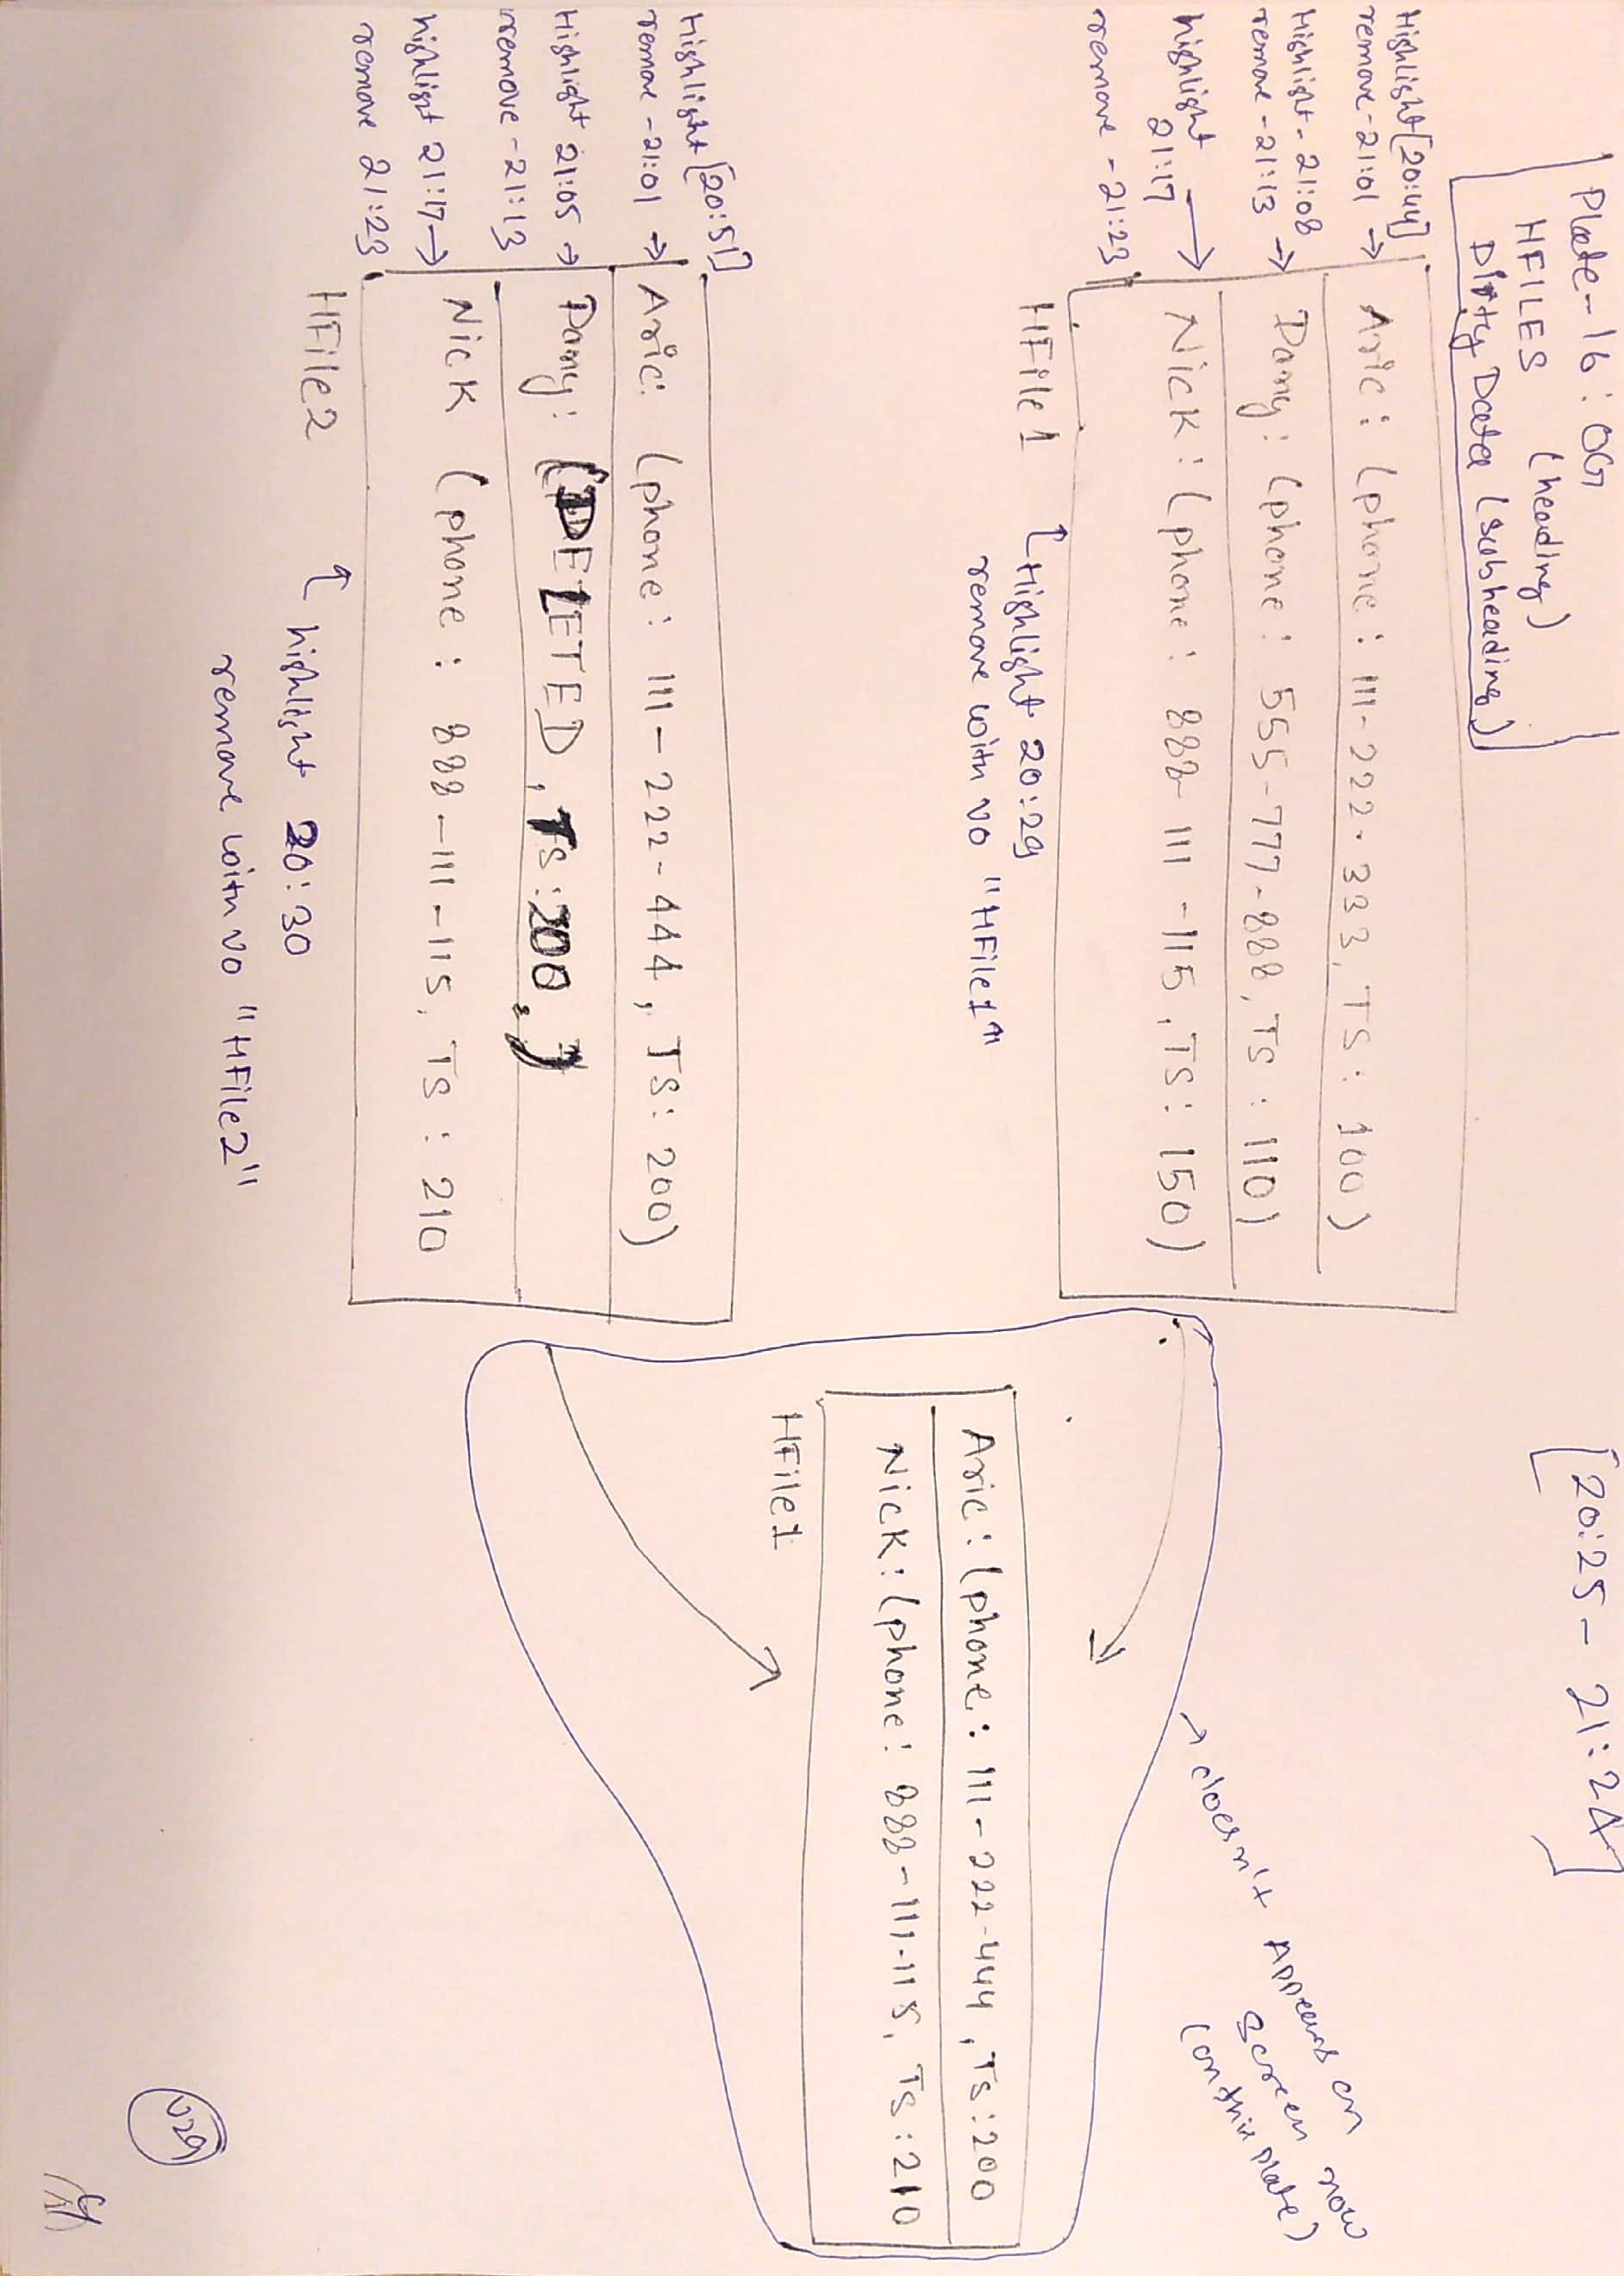 Plate-16: OG
HFILES (heading)
Dirty Data (subheading)
[20:25 - 21:24]
Highlight [20:44]
remove - 21:01 →
Aric: (phone: 111-222-333, TS: 100)
Highlight - 21:08
remove - 21:13 →
Dany: (phone: 555-777-888, TS: 110)
highlight →
21:17
remove - 21:23
Nick: (phone: 888-111-115, TS: 150)
HFile1
Highlight 20:29
remove with vo "HFile1"
→ doesn't Appears on
Screen now
(on this plate)
Aric: (phone: 111-222-444, TS:200
Nick: (phone: 888-111-115, TS:210
HFile1
Highlight [20:51]
remove - 21:01 →
Aric: (phone: 111-222-444, TS: 200)
Highlight 21:05 →
remove - 21:13
Dany: (DELETED, TS:200,)
highlight 21:17 →
remove 21:23
Nick (phone: 888-111-115, TS: 210
HFile2
highlight 20:30
remove with vo "HFile2"